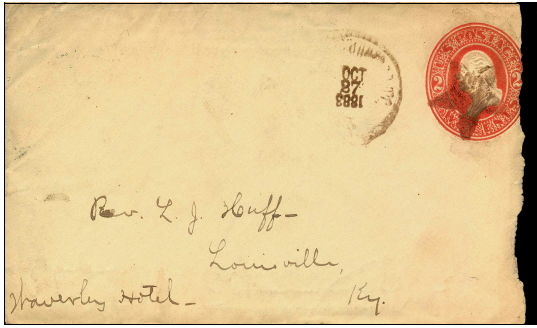 OCT
27
1883
U.S. POSTAGE
2 2
Rev. L. J. Huff-
Louisville,
Waverley Hotel- Ky.